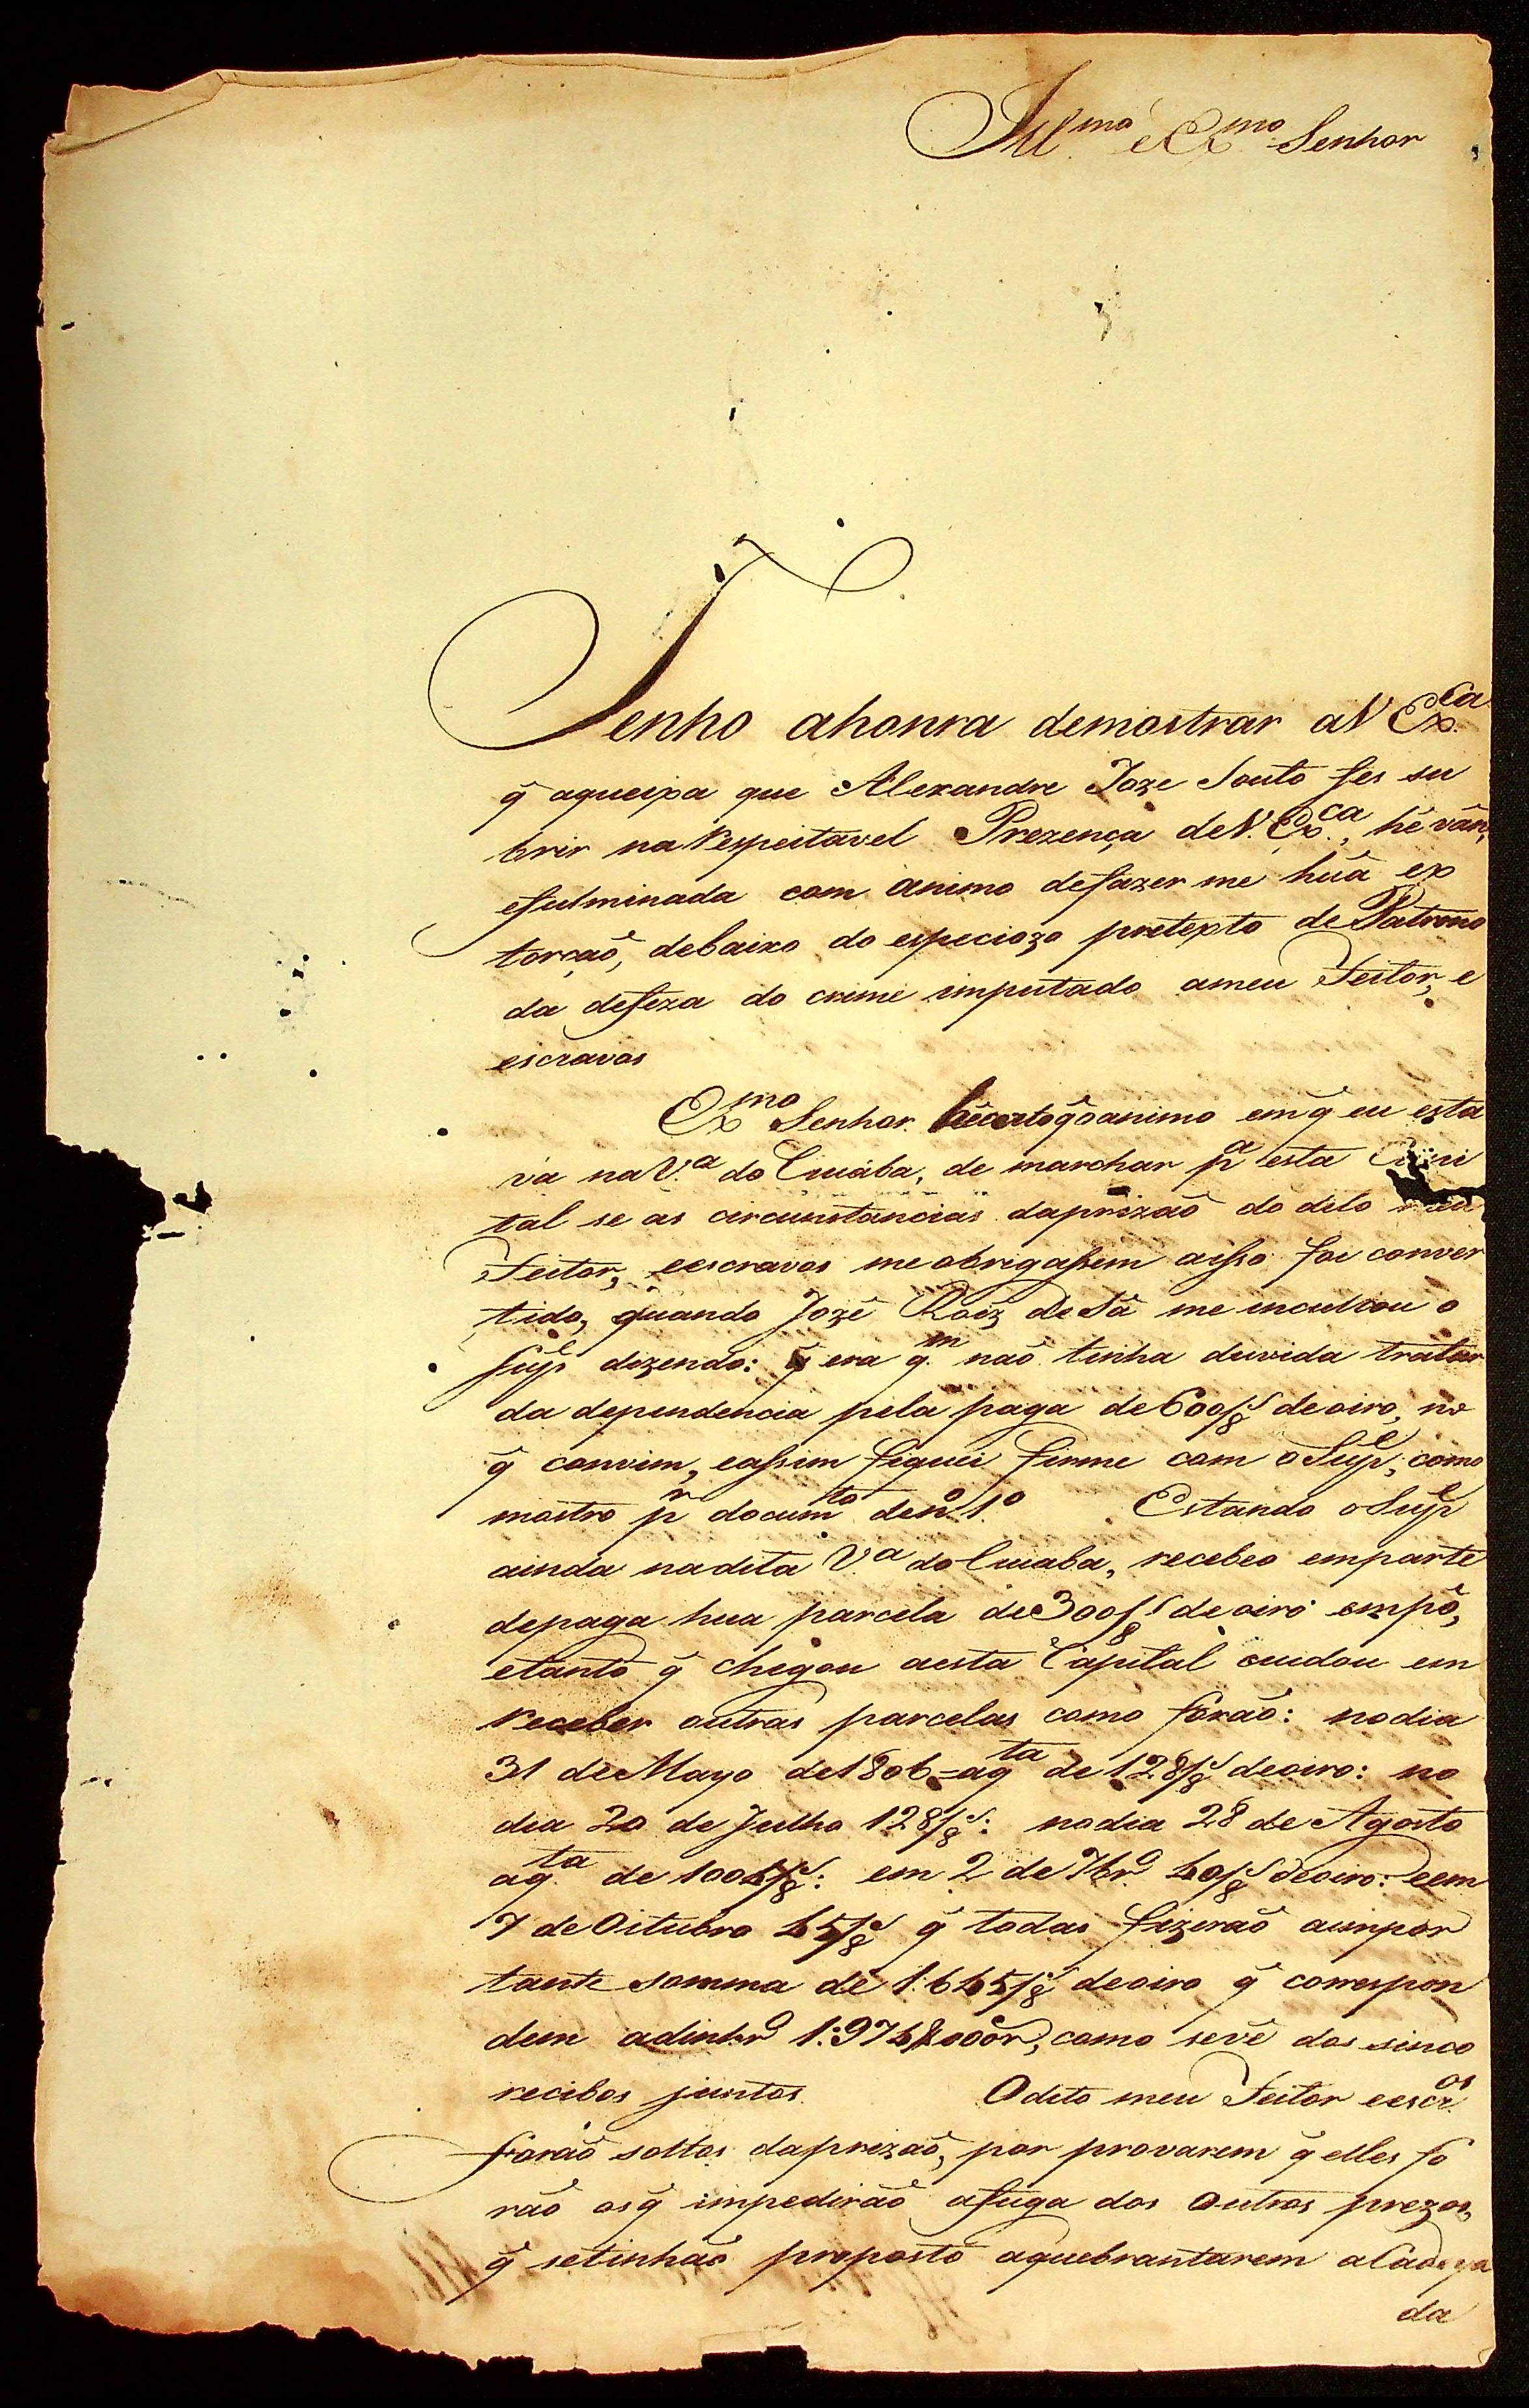 Ill.mo e Ex.mo Senhor
Tenho ahonra demostrar aV Ex.ca
q̃ aqueixa que Alexandre Joze Souto fes su
brir na Respeitavel Prezença de V. Ex.ca, hé vãn,
efulminada com animo defazer me hũa ex
torção, debaixo do especiozo pretexto de Patrono
da defeza do crime imputado ameu Feitor, e
escravos
Ex.mo Senhor hé certo q̃ o animo em q̃ eu esta
va na V.a do Cuiába, de marchar p.a esta
tal se as circunstancias daprizaõ do dito meu
Feitor, eescravos me obrigassem aisso foi conver
tido, quando Jozé Roiz de Sá me inculcou o
Sup.e dizendo: q̃ era q.m naõ tinha duvida tratar
da dependencia pela paga de 600/8.s de oiro, no
q̃ convim, eassim fiquei firme com o Sup.e, como
mostro p.r docum.to de n.o 1.o Estando o Sup.e
ainda nadita V.a do Cuiaba, recebeo emparte
depaga hua parcela de 300/8.s de oiro empó,
etanto q̃ chegou aesta Capital cuidou em
Receber outras parcelas como foraõ: nodia
31 de Mayo de 1806 = aq.ta de 128/8.s deoiro: no
dia 20 de Julho 128/8.s: nodia 28 de Agosto
aq.ta de 1004/8.s: em 2 de 7br.o 40/8.s deoiro: eem
7 de Oitubro 45/8.s q̃ todas fizeraõ aimpor
tante somma de 1.645/8.s deoiro q̃ correspon
dem adinhr.o 1:974$000r, como sevê dos sinco
recibos juntos. Odito meu Feitor eescr.os
foraõ soltos daprizaõ, por provarem q̃ elles fo
raõ osq̃ impediraõ afuga dos outros prezos,
q̃ setinhaõ proposto aquebrantarem aCadeya
da